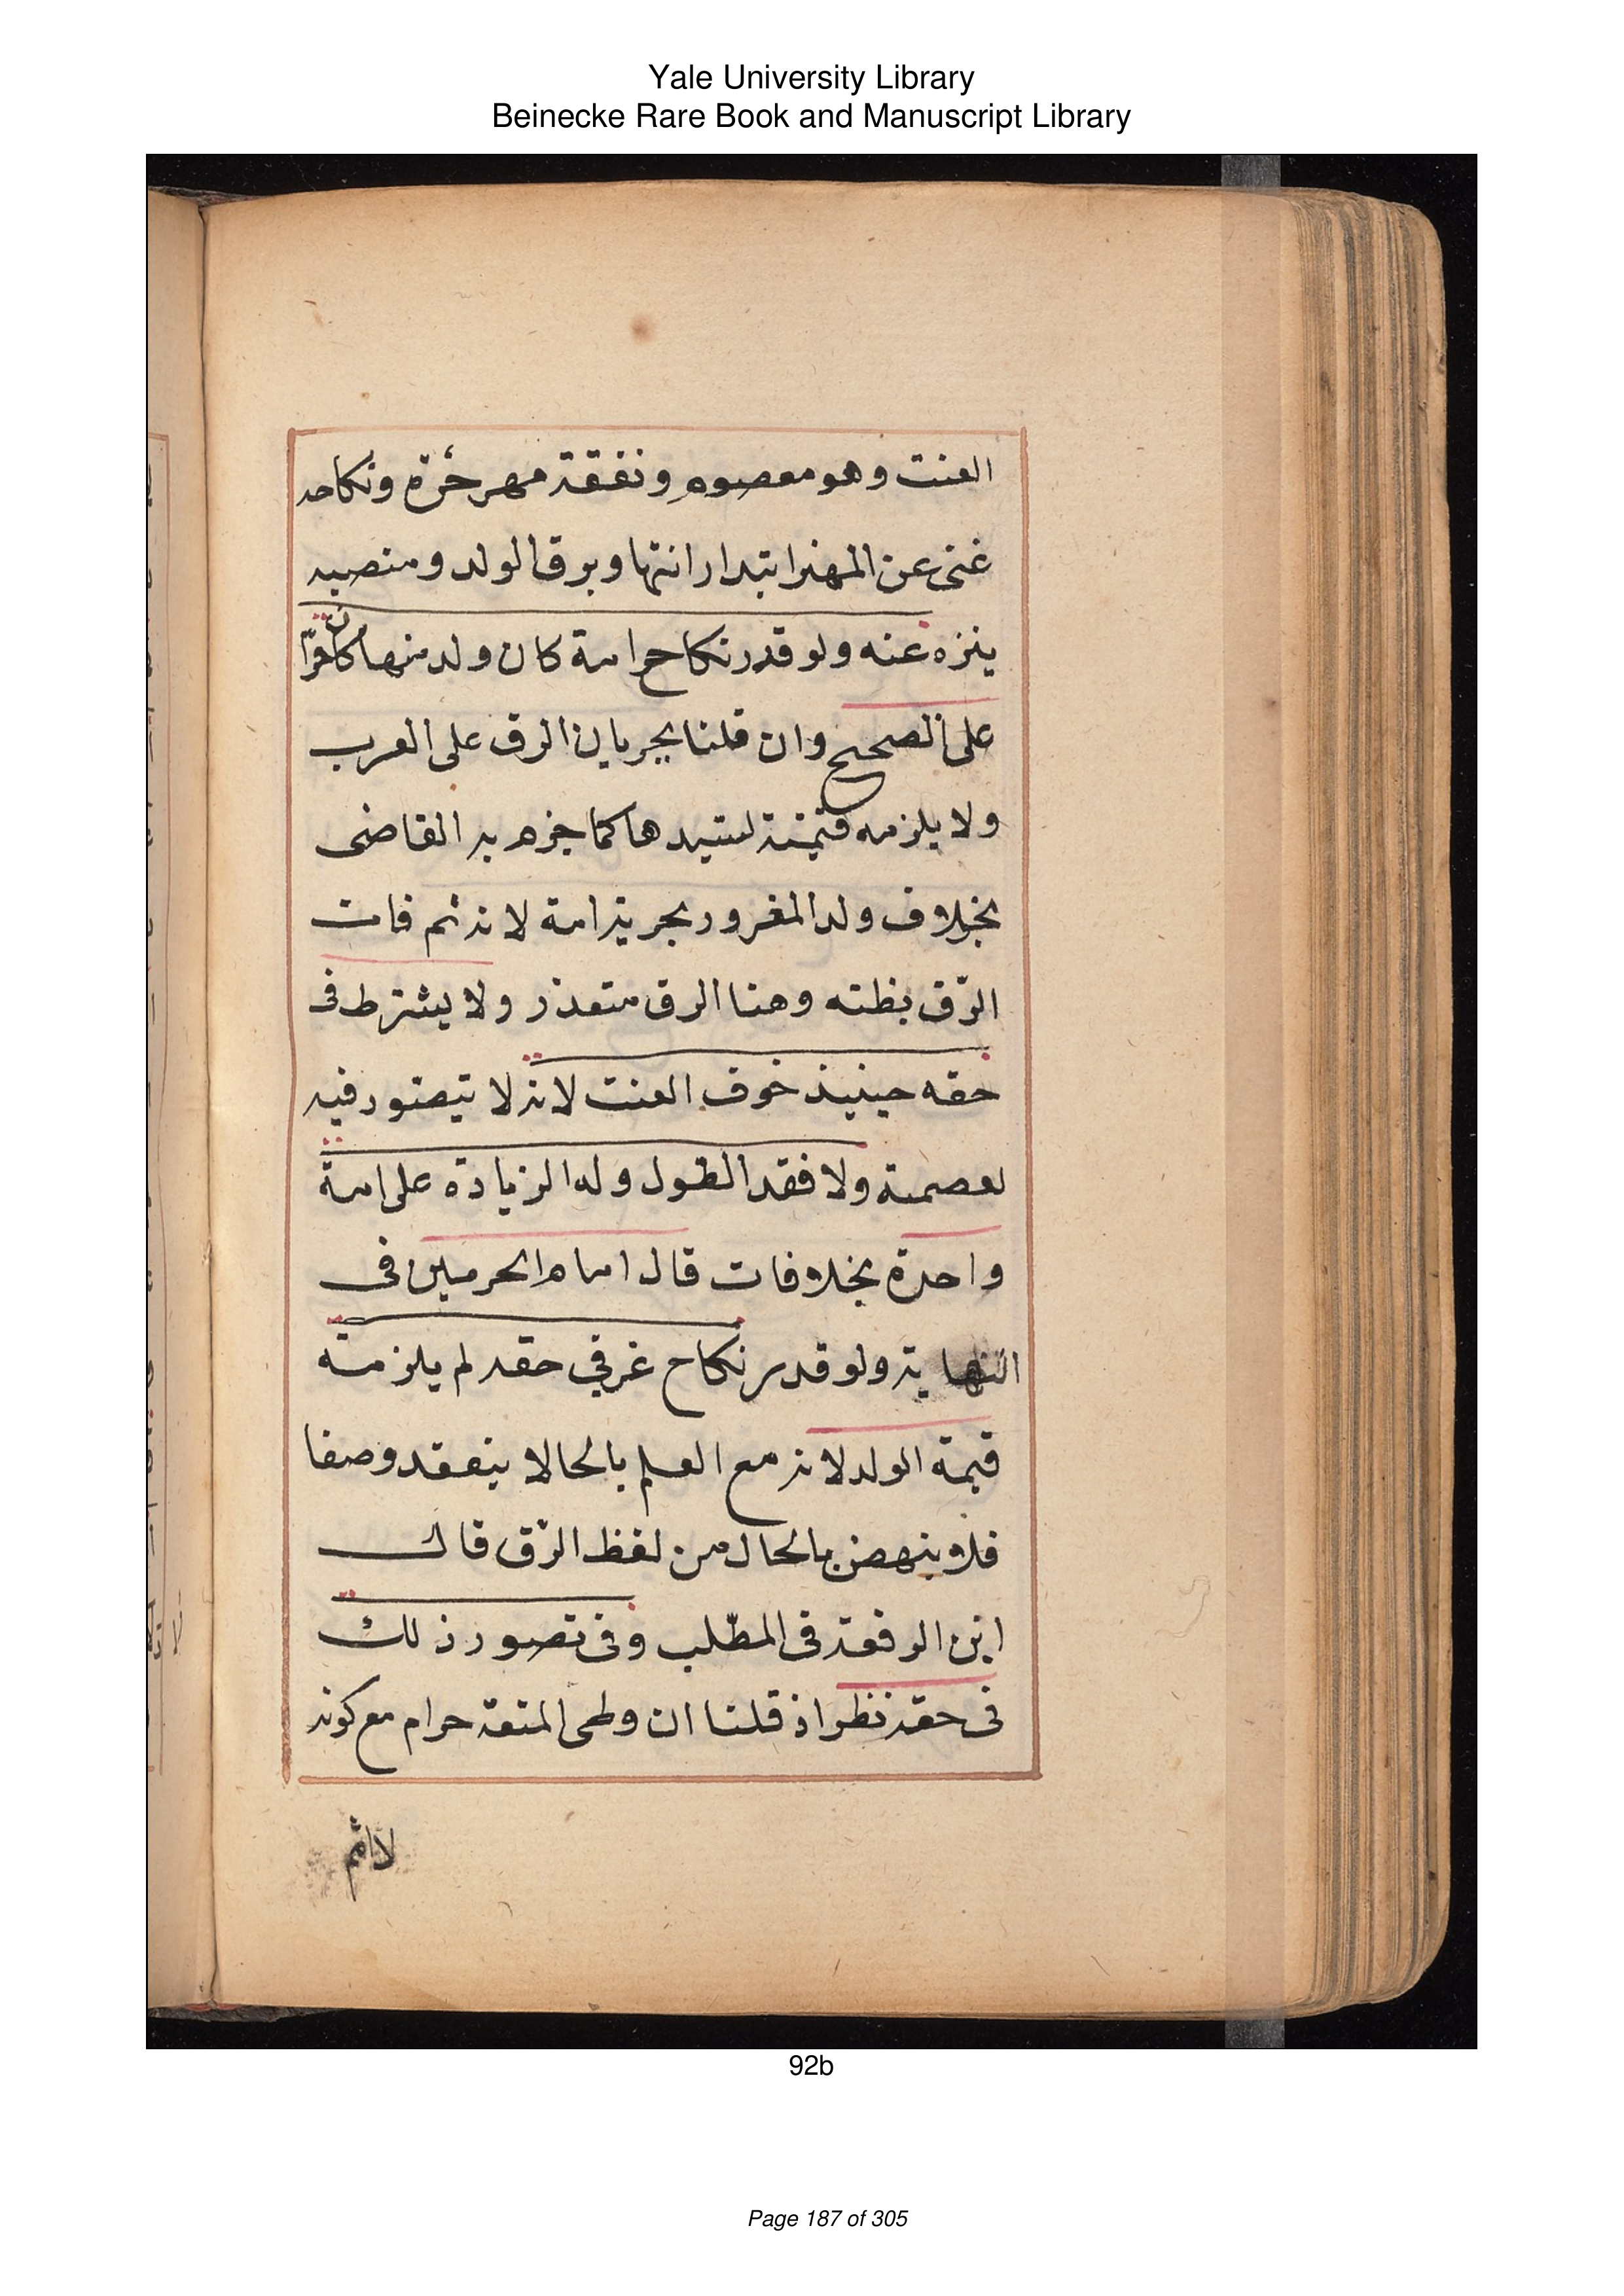 Yale University Library
Beinecke Rare Book and Manuscript Library
العنت وهو معصوم ونفقة مهر حرة ونكاحه
غنى عن المهر ابتدا وانتها وبرق الولد ومنصبه
ينزه عنه ولو قدر نكاح امة كان ولد منها كان حرّا
على الصحيح وان قلنا بجريان الرق على العرب
ولا يلزمه قيمته لسيدها كما جزم به القاضى
بخلاف ولد المغرور بحرية امة لانه ثم فات
الرّق بظنه وهنا الرق متعذر ولا يشترط فى
حقه حينيذ خوف العنت لانه لا يتصور فيه
لعصمته ولا فقد الطول وله الزيادة على امة
واحدة بخلافات قال امام الحرمين فى
النهاية ولو قدر نكاح غر في حقه لم يلزمه
قيمة الولد لانه مع العلم بالحالا ينعقد وصفا
فلا ينهض بالحال من لفظ الرّق قال
ابن الرفعة فى المطّلب وفى تصور ذلك
فى حقه نظر اذ قلنا ان وطى المتعة حرام مع كونه
لا اثم
92b
Page 187 of 305